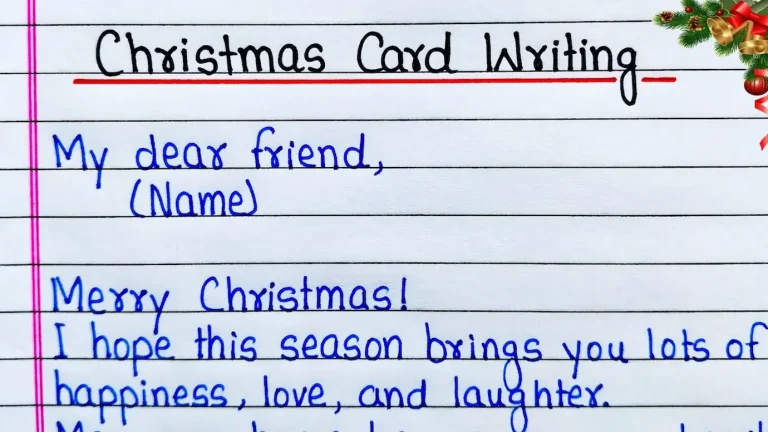 Christmas Card Writing
My dear friend,
(Name)
Merry Christmas!
I hope this season brings you lots of
happiness, love, and laughter.